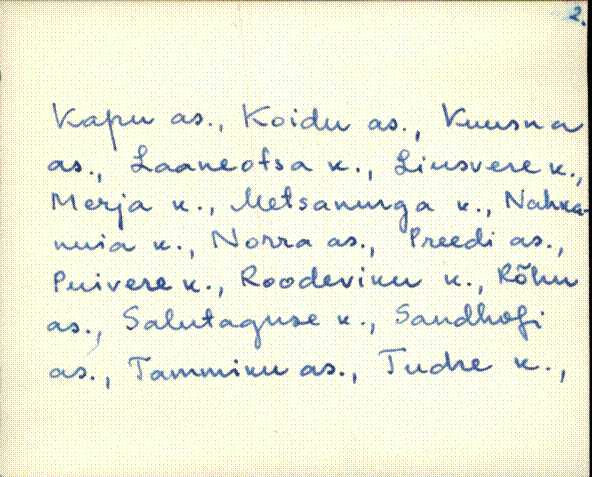 2.
Kapu as., Koidu as., Kuusna
as., Laaneotsa k., Liusvere k.,
Merja k., Metsanurga k., Nahka-
nuia k., Norra as., Preedi as.,
Puivere k., Roodeviku k., Rõhu
as., Salutaguse k., Sandhofi
as., Tammiku as., Tudre k.,